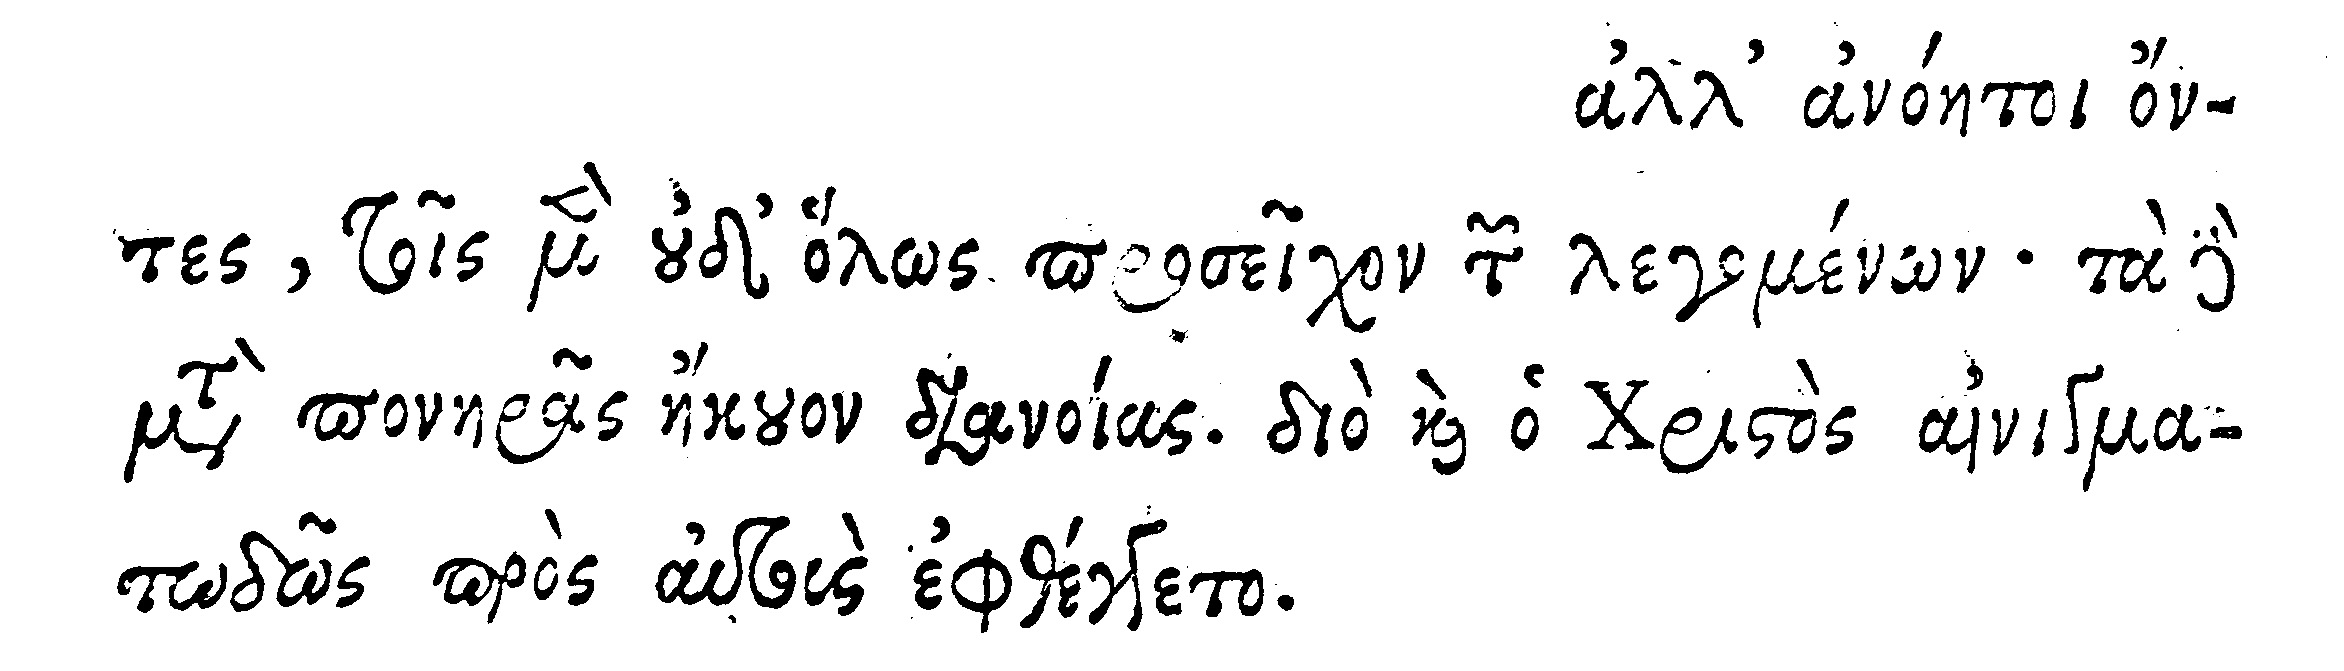 ἀλλ’ ἀνόητοι ὄν-
τες, τοῖς μὲν οὐδ’ ὅλως προσεῖχον τῶν λεγομένων· τὰ δὲ
μετὰ πονηρᾶς ἤκουον διανοίας. διὸ καὶ ὁ Χριστὸς αἰνιγμα-
τωδῶς πρὸς αὐτοὺς ἐφθέγγετο.